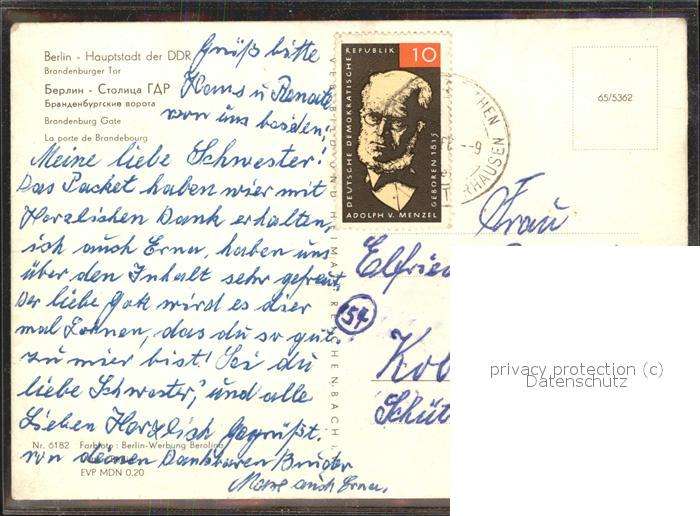 Berlin - Hauptstadt der DDR
Brandenburger Tor
Берлин - Столица ГДР
Бранденбургские ворота
Brandenburg Gate
La porte de Brandebourg
Grüß bitte
Hans u Renate
von uns beiden!
Meine liebe Schwester!
Das Packet haben wier mit
Herzlichen Dank erhalten,
ich auch Erna, haben uns
über den Inhalt sehr gefreut,
Der liebe Gott wird es dier
mal Lonen, das du so gut
zu mier bist! Sei du
liebe Schwester, und alle
Lieben Herzlich Gegrüßt.
von deinen Dankbaren Bruder
auch Erna.
Nr. 6182 Farbfoto: Berlin-Werbung Berolina
EVP MDN 0,20
DEUTSCHE DEMOKRATISCHE REPUBLIK
10
GEBOREN 1815
ADOLPH V. MENZEL
HAUSEN
65/5362
Frau
Elfried
54
Kob
Schüt
privacy protection (c)
Datenschutz